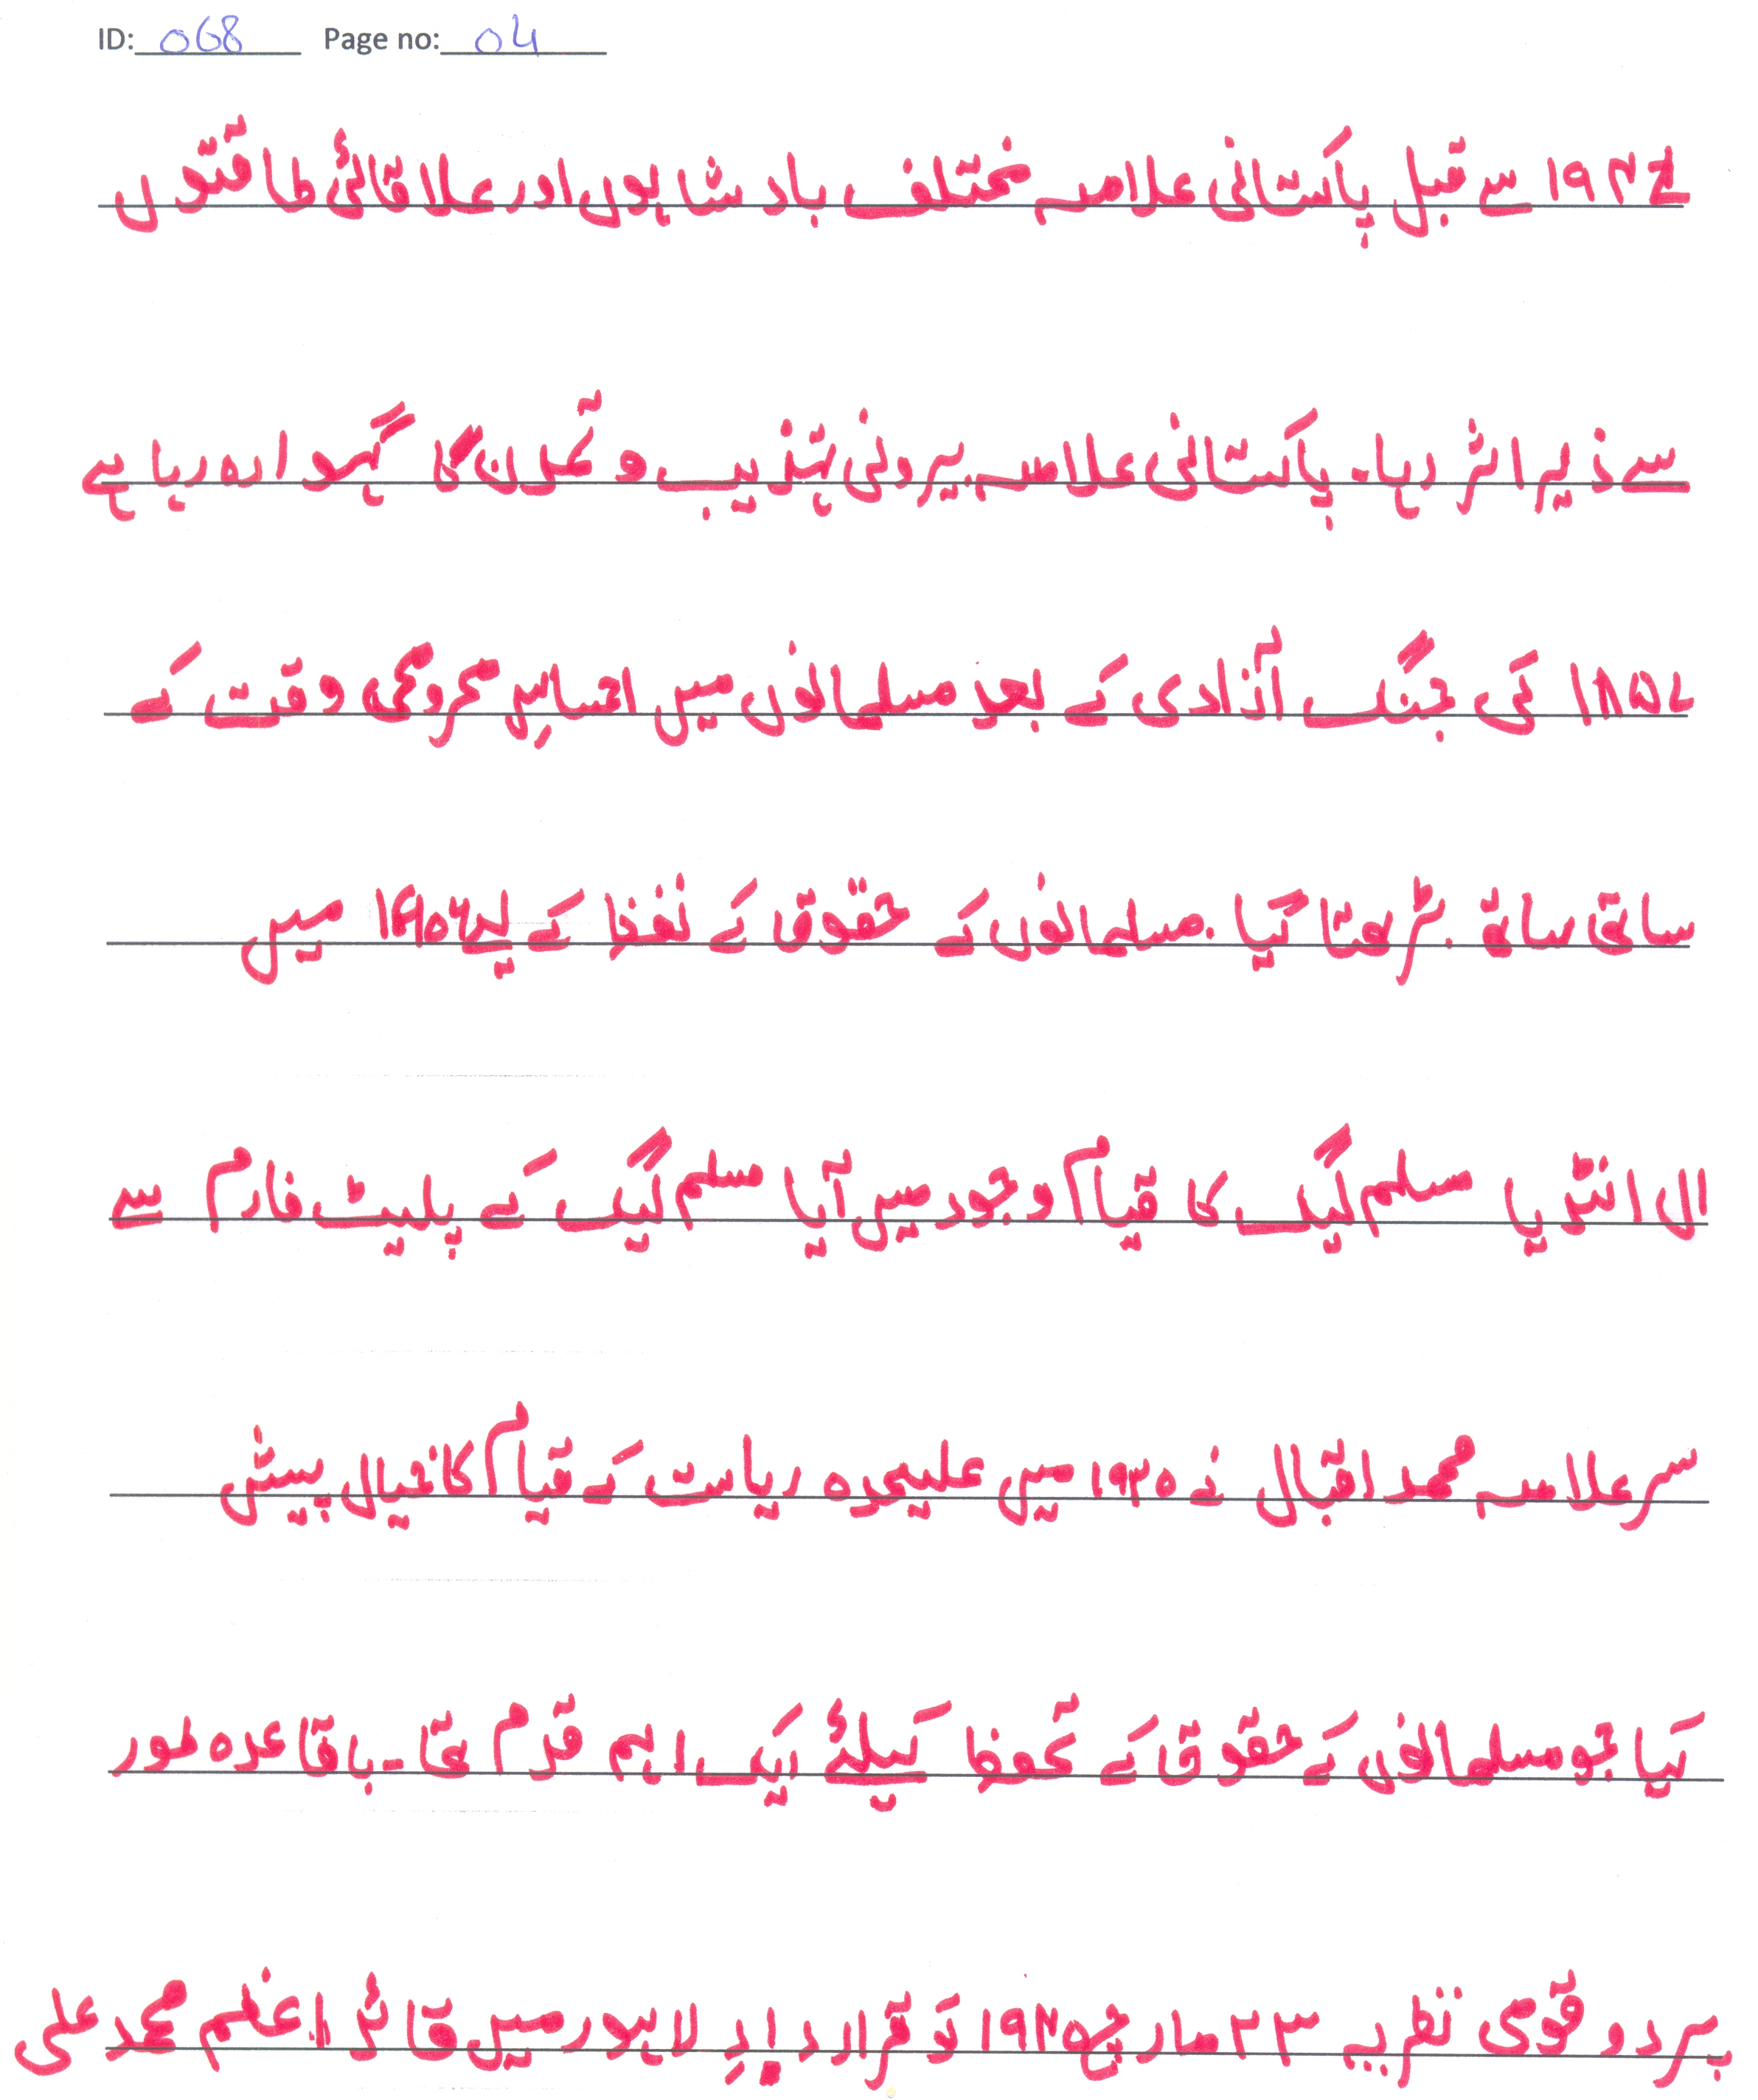 ID: 068 Page no: 04
۱۹۴۷ سے قبل پاکستانی علامہ مختلف بادشاہوں اور علاقائی طاقتوں
سے ذیر اثر رہا۔ پاکستانی علامہ بیرونی تہذیب و تمدن کا گہوارہ رہا ہے
۱۸۵۷ کی جنگ آزادی کے بعد مسلمانوں میں احساسِ محرومی وقت کے
ساتھ ساتھ بڑھتا گیا۔ مسلمانوں کے حقوق کے تحفظ کے لیے ۱۹۰۶ میں
ال انڈیا مسلم لیگ کا قیام وجود میں آیا مسلم لیگ کے پلیٹ فارم سے
سر علامہ محمد اقبال نے ۱۹۳۰ میں علیحدہ ریاست کے قیام کا خیال پیش
کیا جو مسلمانوں کے حقوق کے تحفظ کیلئے ایک اہم قدم تھا۔ باقاعدہ طور
پر دو قومی نظریہ ۲۳ مارچ ۱۹۴۰ کو قراردادِ لاہور میں قائد اعظم محمد علی